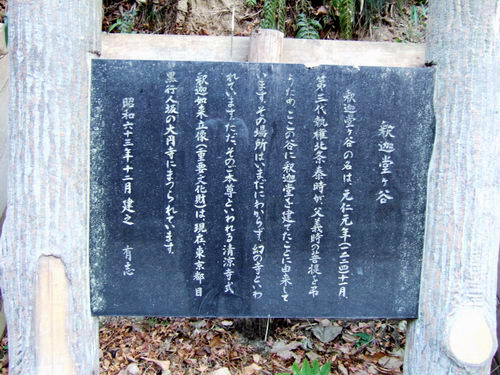 釈迦堂ヶ谷
釈迦堂ヶ谷の名は、元仁元年(一二二四)十一月、
第三代執権北条泰時が、父義時の菩提を弔
うため、ここの谷に釈迦堂を建てたことに由来して
います。その場所はいまだにわからず、幻の寺といわ
れています。ただ、そのご本尊といわれる清涼寺式
釈迦如来立像(重要文化財)は、現在、東京都目
黒行人坂の大円寺にまつられています。
昭和六十三年十一月 建之 有志